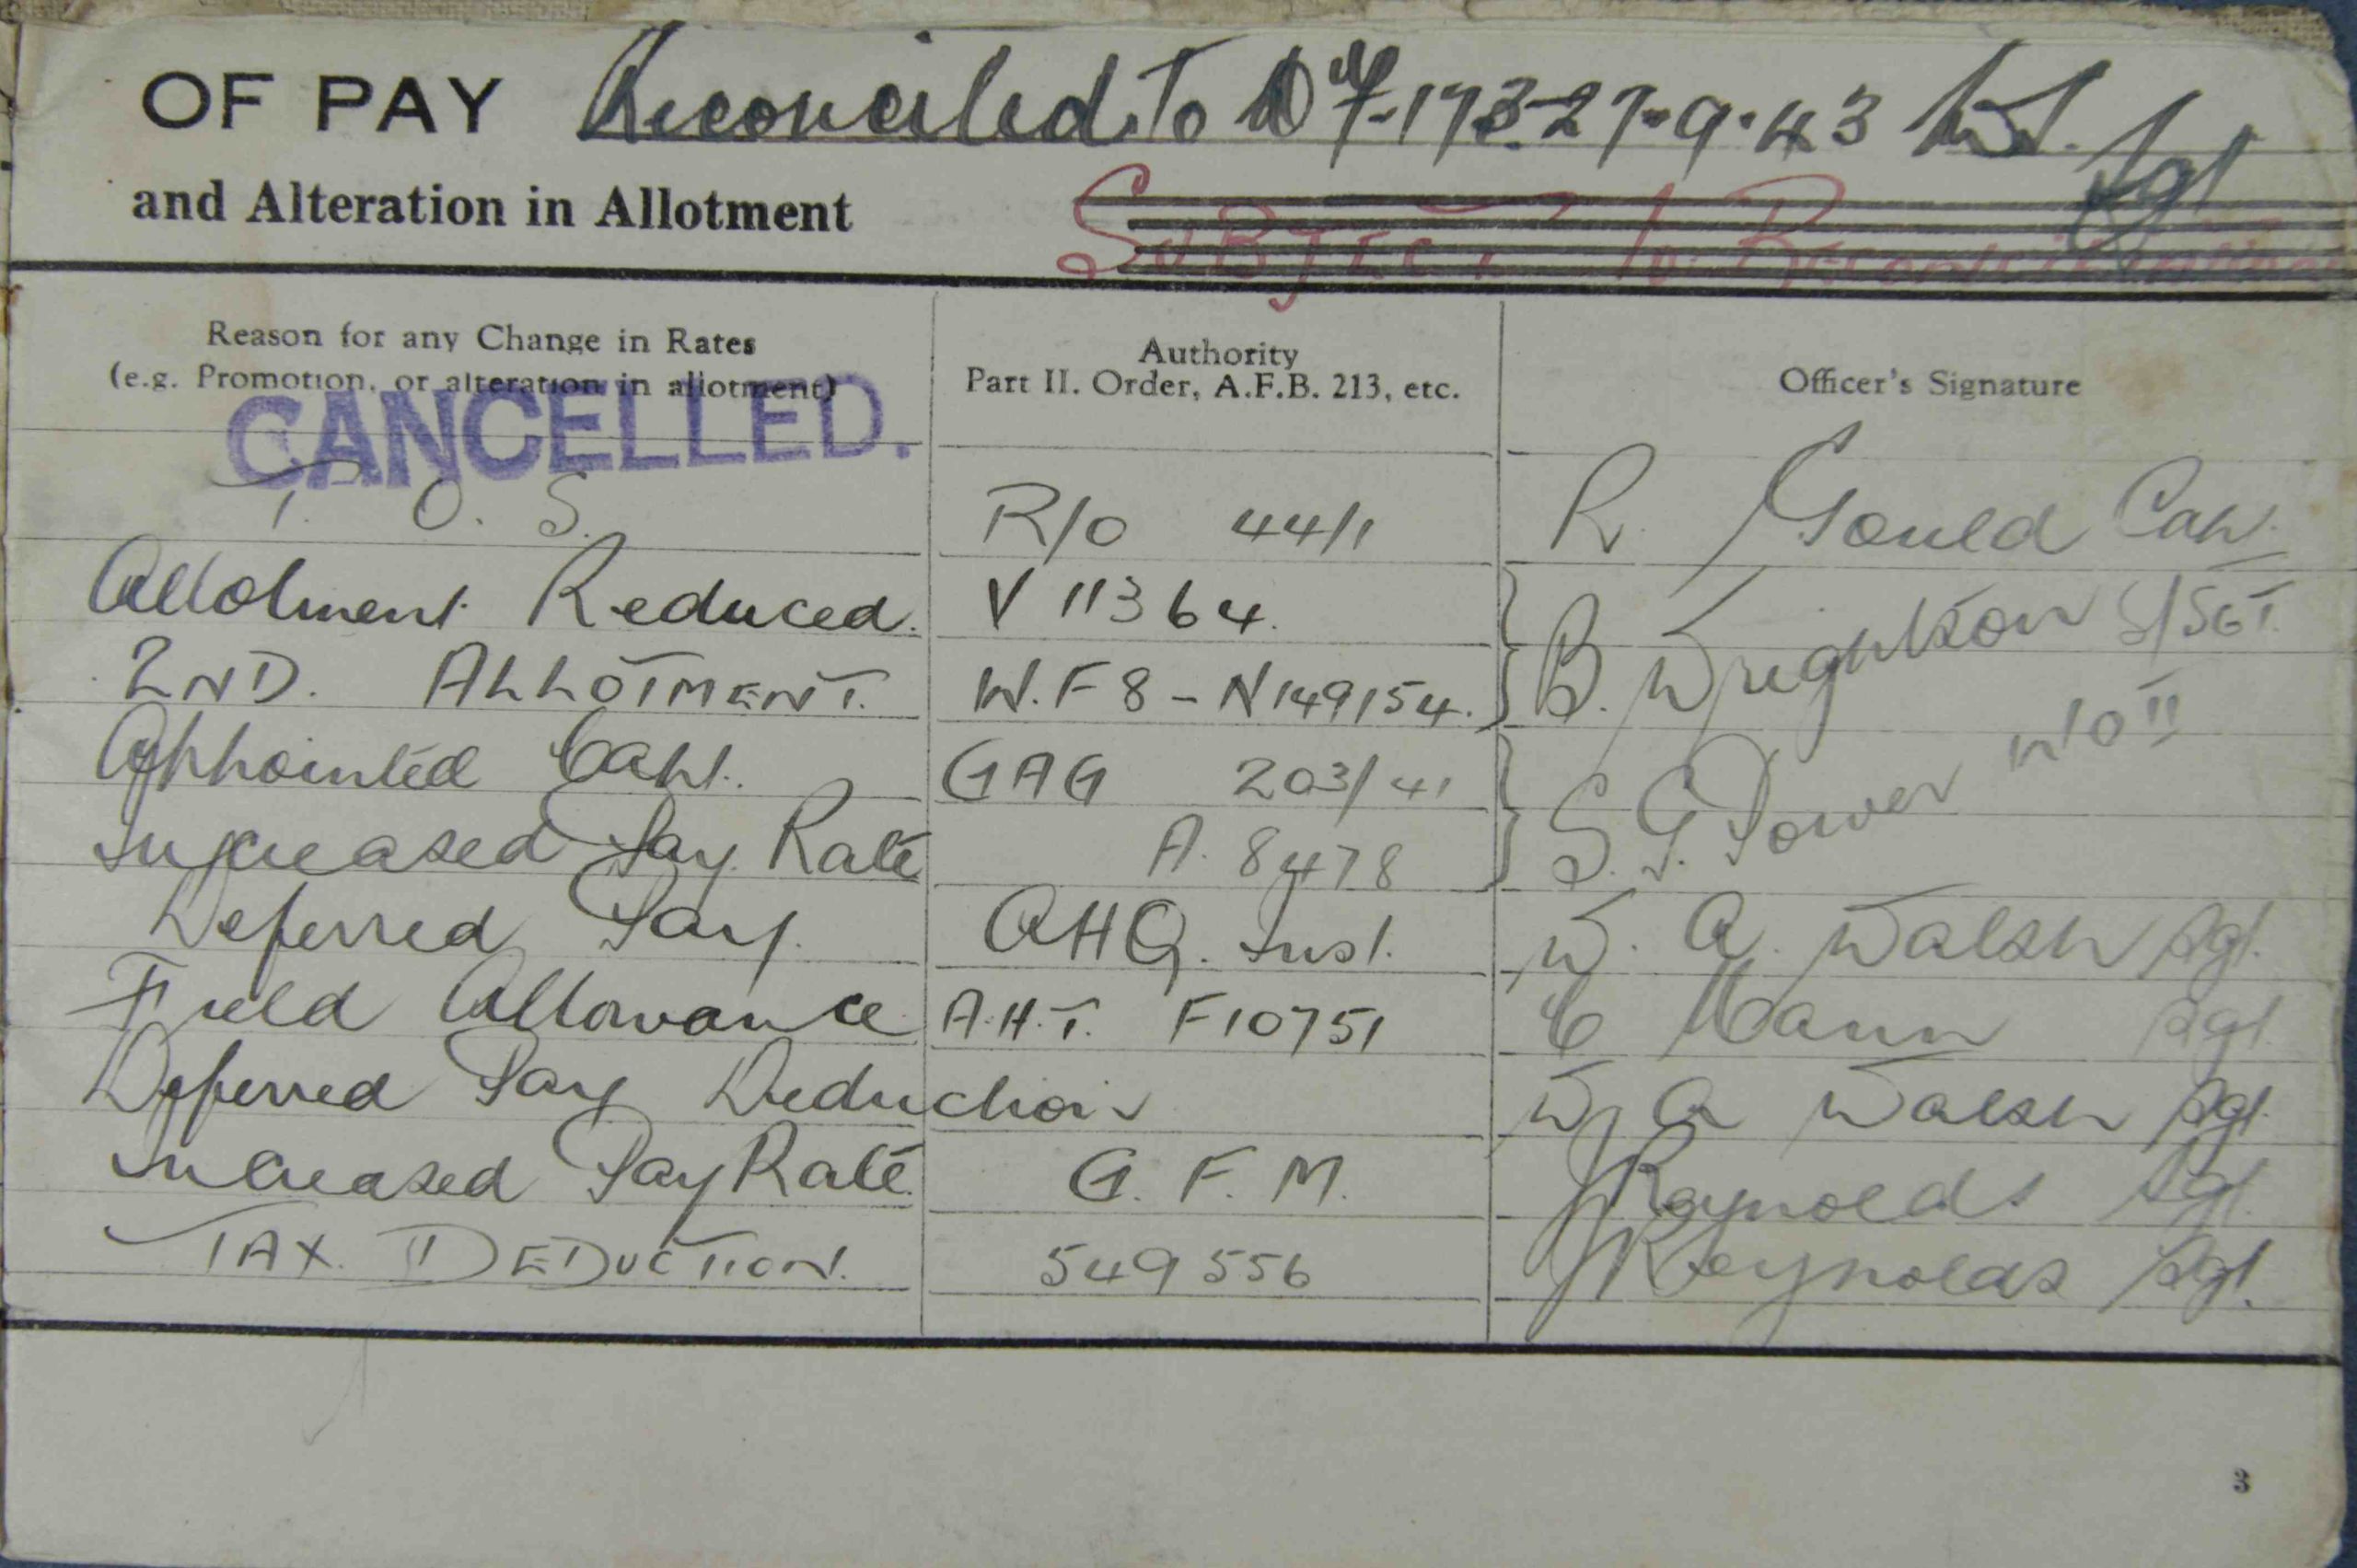 OF PAY Reconciled To 27-9-43
Sgt
and Alteration in Allotment SUBJECT To Reconciliation
Reason for any Change in Rates
(e.g. Promotion, or alteration in allotment)
Authority
Part II. Order, A.F.B. 213, etc.
Officer's Signature
CANCELLED.
T. O. S. R/O 44/1 R. Gould Capt.
Allotment Reduced. V 11364.
2ND. ALLOTMENT. W.F 8 - N149154. B. Wrightson S/SGT.
Appointed Capt. GAG 203/41
Increased Pay Rate A. 8478 S. G. Power W/O II
Deferred Pay. AHQ. Inst. W. A. Walsh Sgt.
Field Allowance A.H.T. F10751 C Mann Sgt.
Deferred Pay Deduction W A Walsh Sgt.
Increased Pay Rate G. F. M. J Reynolds Sgt.
TAX DEDUCTION. 549556 J Reynolds Sgt.
3